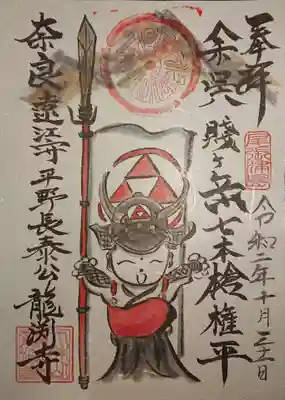 奉拝
令和二年十月三十一日
余呉賤ヶ岳七本槍権平
奈良遠江守平野長泰公龍渕寺